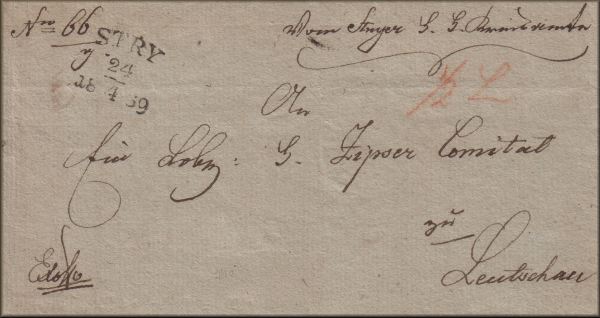 Nro 66
STRY
24
4
18 39
Vom Stryer K. K. Kreisamte
An
Ein Löbl: K. Zipser Comitat
zu
Leutschau
Exoffo